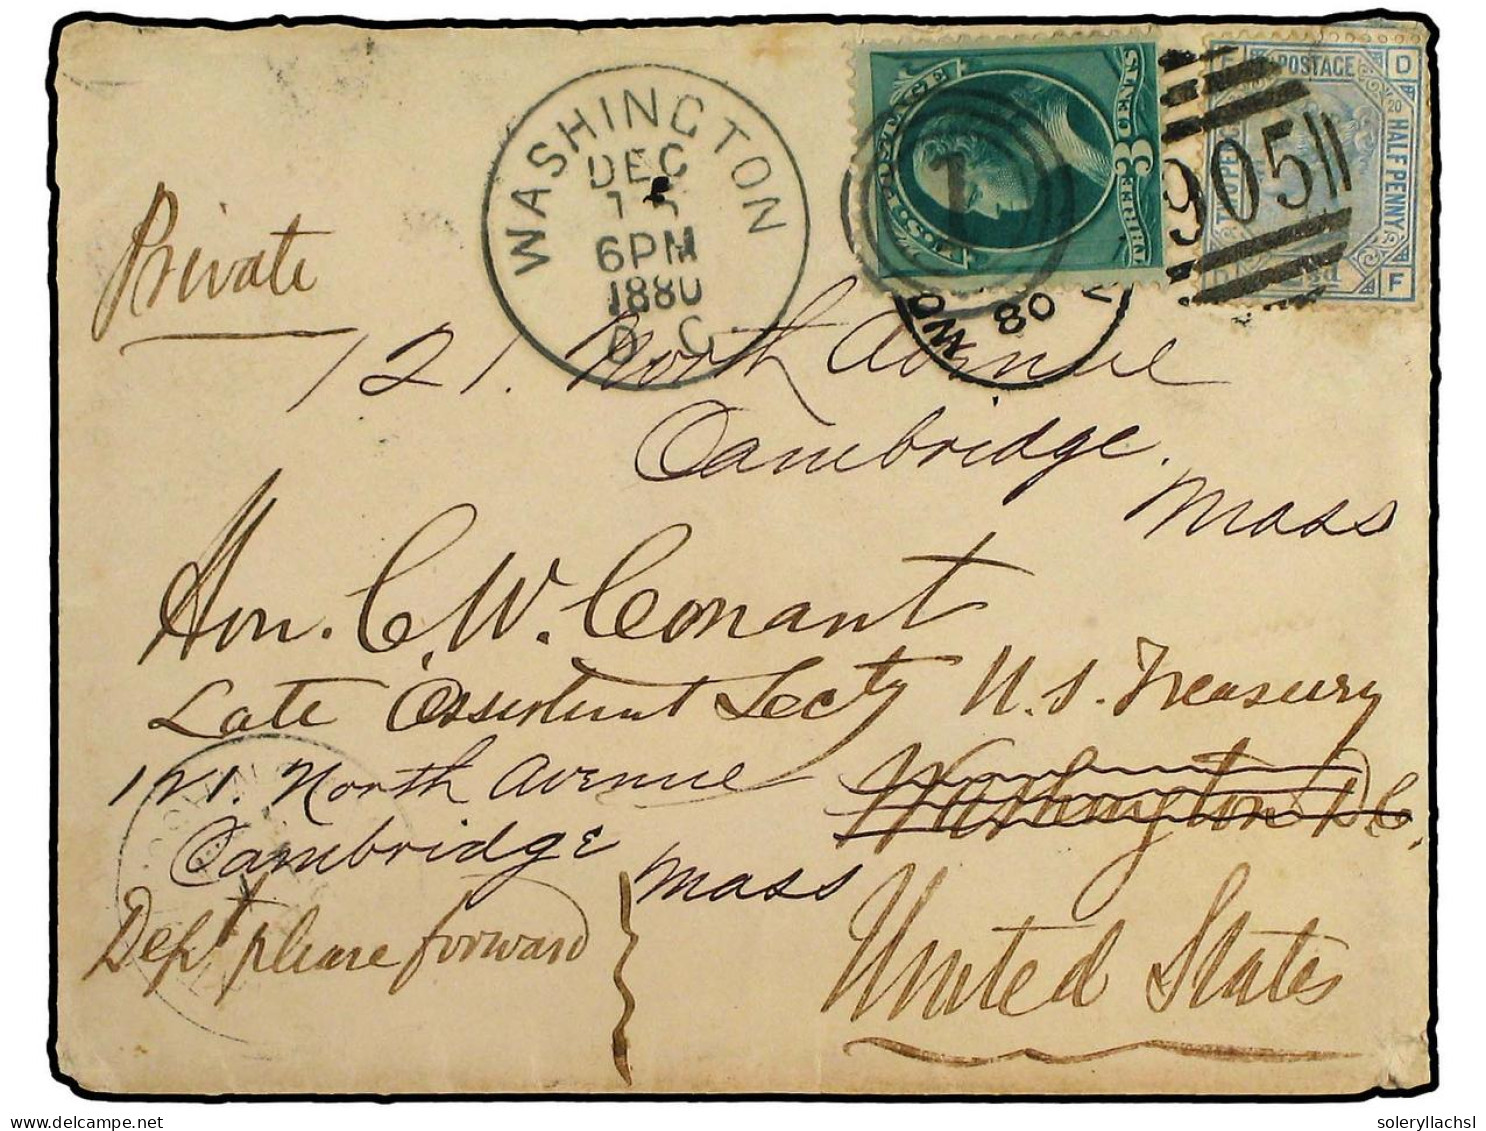 WASHINGTON
DEC
6PM
1880
D. C.
U.S. POSTAGE
THREE 3 CENTS
1
80
905
POSTAGE
HALFPENNY
20
D
F
Private
121. North Avenue
Cambridge.
Mass
Hon. C. W. Conant
Late Assistant Secty U.S. Treasury
121. North Avenue
Washington D.C.
Cambridge
Mass
Dept please forward
United States
soleryllachsl